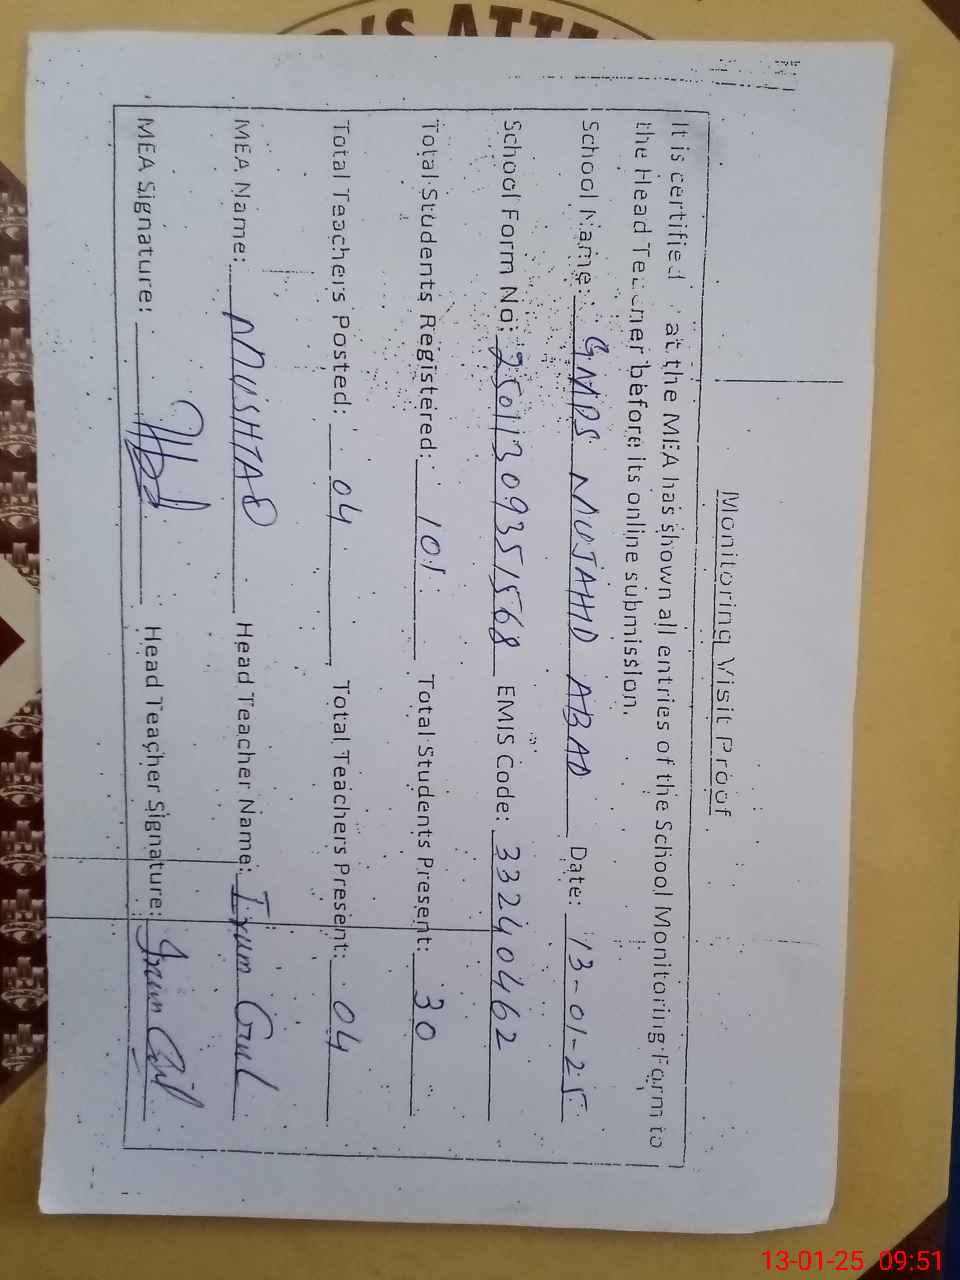 'S ATTE
Monitoring Visit Proof
It is certified at the MEA has shown all entries of the School Monitoring Form to
the Head Teacher before its online submission.
School Name: GMPS MUJAHID ABAD Date: 13-01-25
School Form No: 25011309351568 EMIS Code: 33240462
Total Students Registered: 101 Total Students Present: 30
Total Teachers Posted: 04 Total Teachers Present: 04
MEA Name: MUSHTAQ Head Teacher Name: Irum Gul
MEA Signature: Head Teacher Signature: Irum Gul
13-01-25 09:51